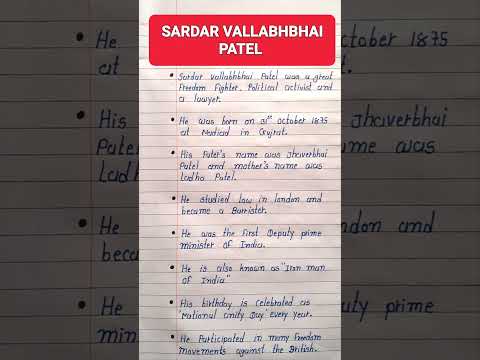 SARDAR VALLABHBHAI
PATEL
• Sardar Vallabhbhai Patel was a great
Freedom Fighter, Political activist and
a lawyer.
• He was born on 31st October 1875
at Nadiad in Gujrat.
• His Fater's name was Jhaverbhai
Patel and mother's name was
Ladha Patel.
• He studied law in london and
became a Barrister.
• He was the first Deputy prime
minister of India.
• He is also known as "Iron man
of India"
• His birthday is celebrated as
'National unity Day' every year.
• He Participated in many Freedom
movements against the British.